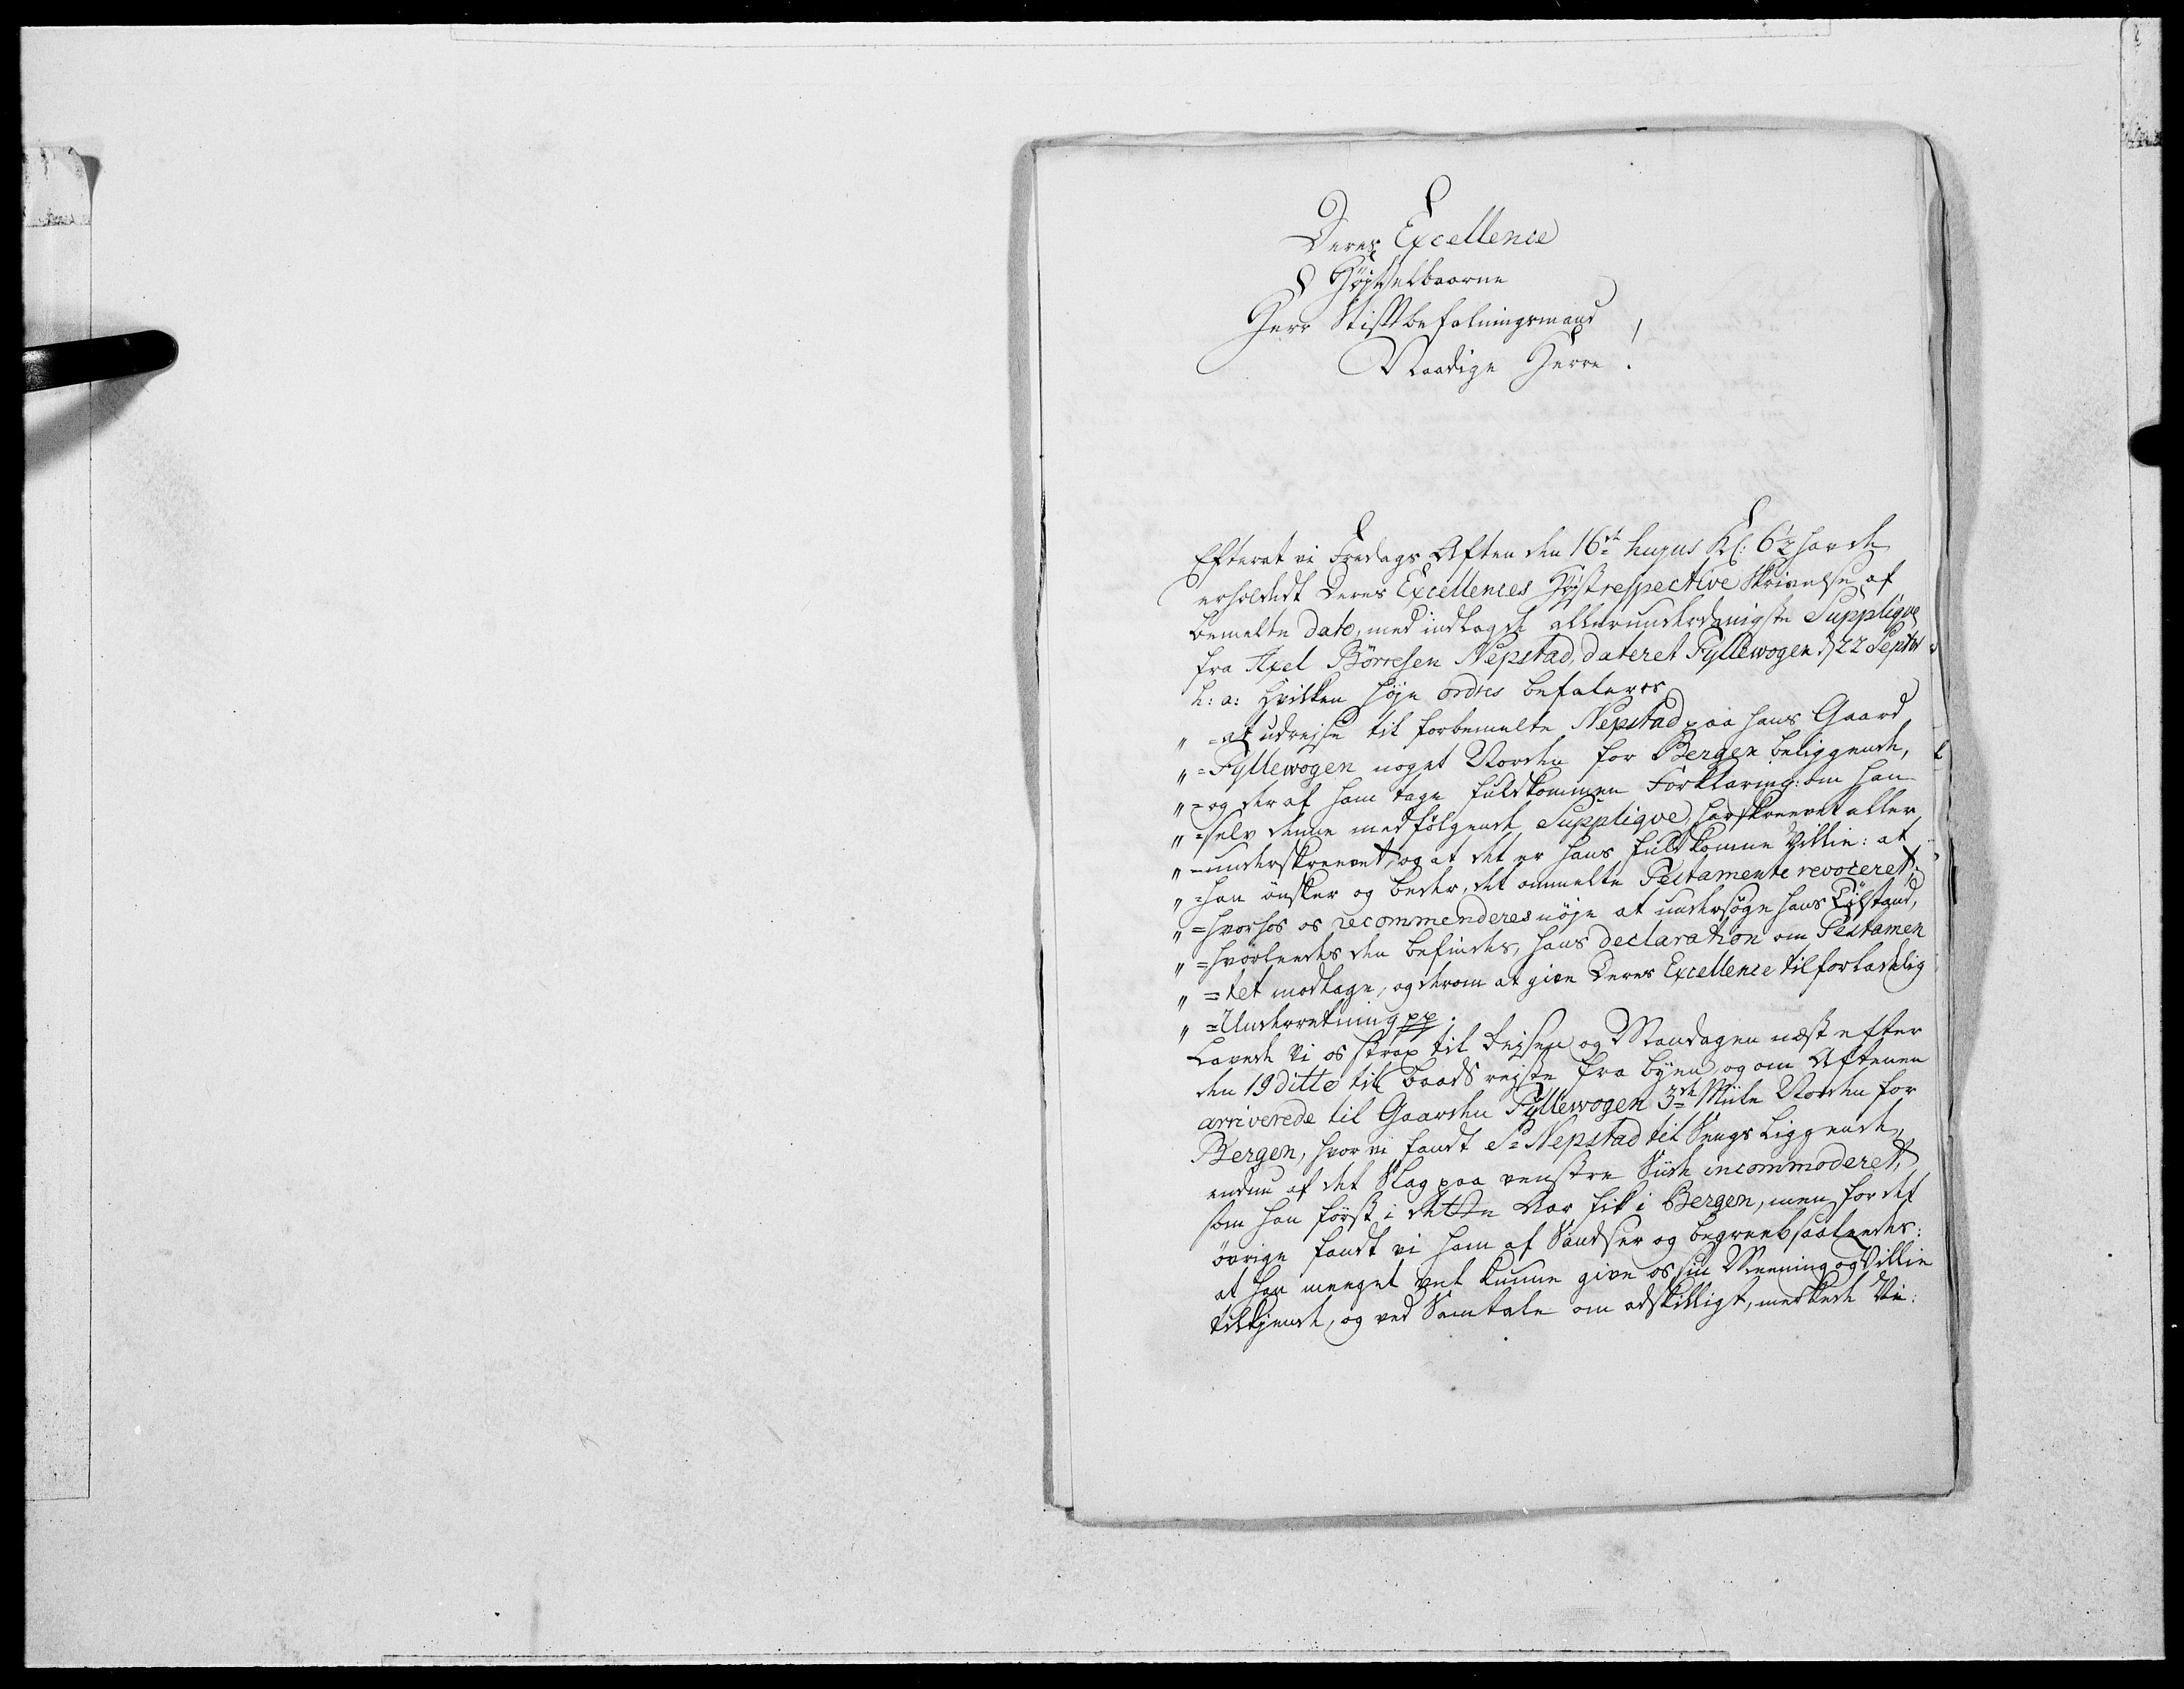 Deres Excellence
Höyædelbaarne
Herr Stiftbefalningsmand
Naadige Herre!
Efterat vi Fredags Aften den 16de hujus Kl: 6½ havde
erholdedt Deres Excellences Høystrespective Skrivelse af
bemelte dato, med indlagde allerunderdanigste Supplique
fra Axel Börresen Nepstad, dateret Fyllewogen d 22 Septbr
h: a: Hvilken höye ordres befaler os
" = at udreyse til forbemelte Nepstad paa hans Gaard
" = Fyllewogen noget Norden for Bergen beliggende,
" = og der af ham tage fuldkommen Forklaring: om han
" = selv denne medfölgende Supplique, har skreevet eller
" = underskreevet, og at det er hans fuldkomne Villie: at
" = han önsker og beder, det ommelte Testamente revoceret;
" = hvorhos os recommenderes nöye at undersöge hans Tilstand,
" = hvorleedes den befindes, hans declaration om Testamen
" = tet modtage, og derom at give Deres Excellence tilforladelig
" = Underretning pp.
Lavede Vi os strax til Reysen og Mandagen næst efter
den 19 ditto til Baads reyste fra byen, og om Aftenen
arriverede til Gaarden Fyllewogen 3de Miile Norden for
Bergen, hvor vi fandt Sr Nepstad til Sengs liggende,
endnu af det Slag paa venstre Siide incommoderet,
som han först i dette Aar fik i Bergen, men for det
övrige fandt vi ham af Sandser og begreeb saaleedes:
at han meeget vel kunne give os sin Meening og Villie
tilkjende, og ved Samtale om adskilligt, merkede Vi: